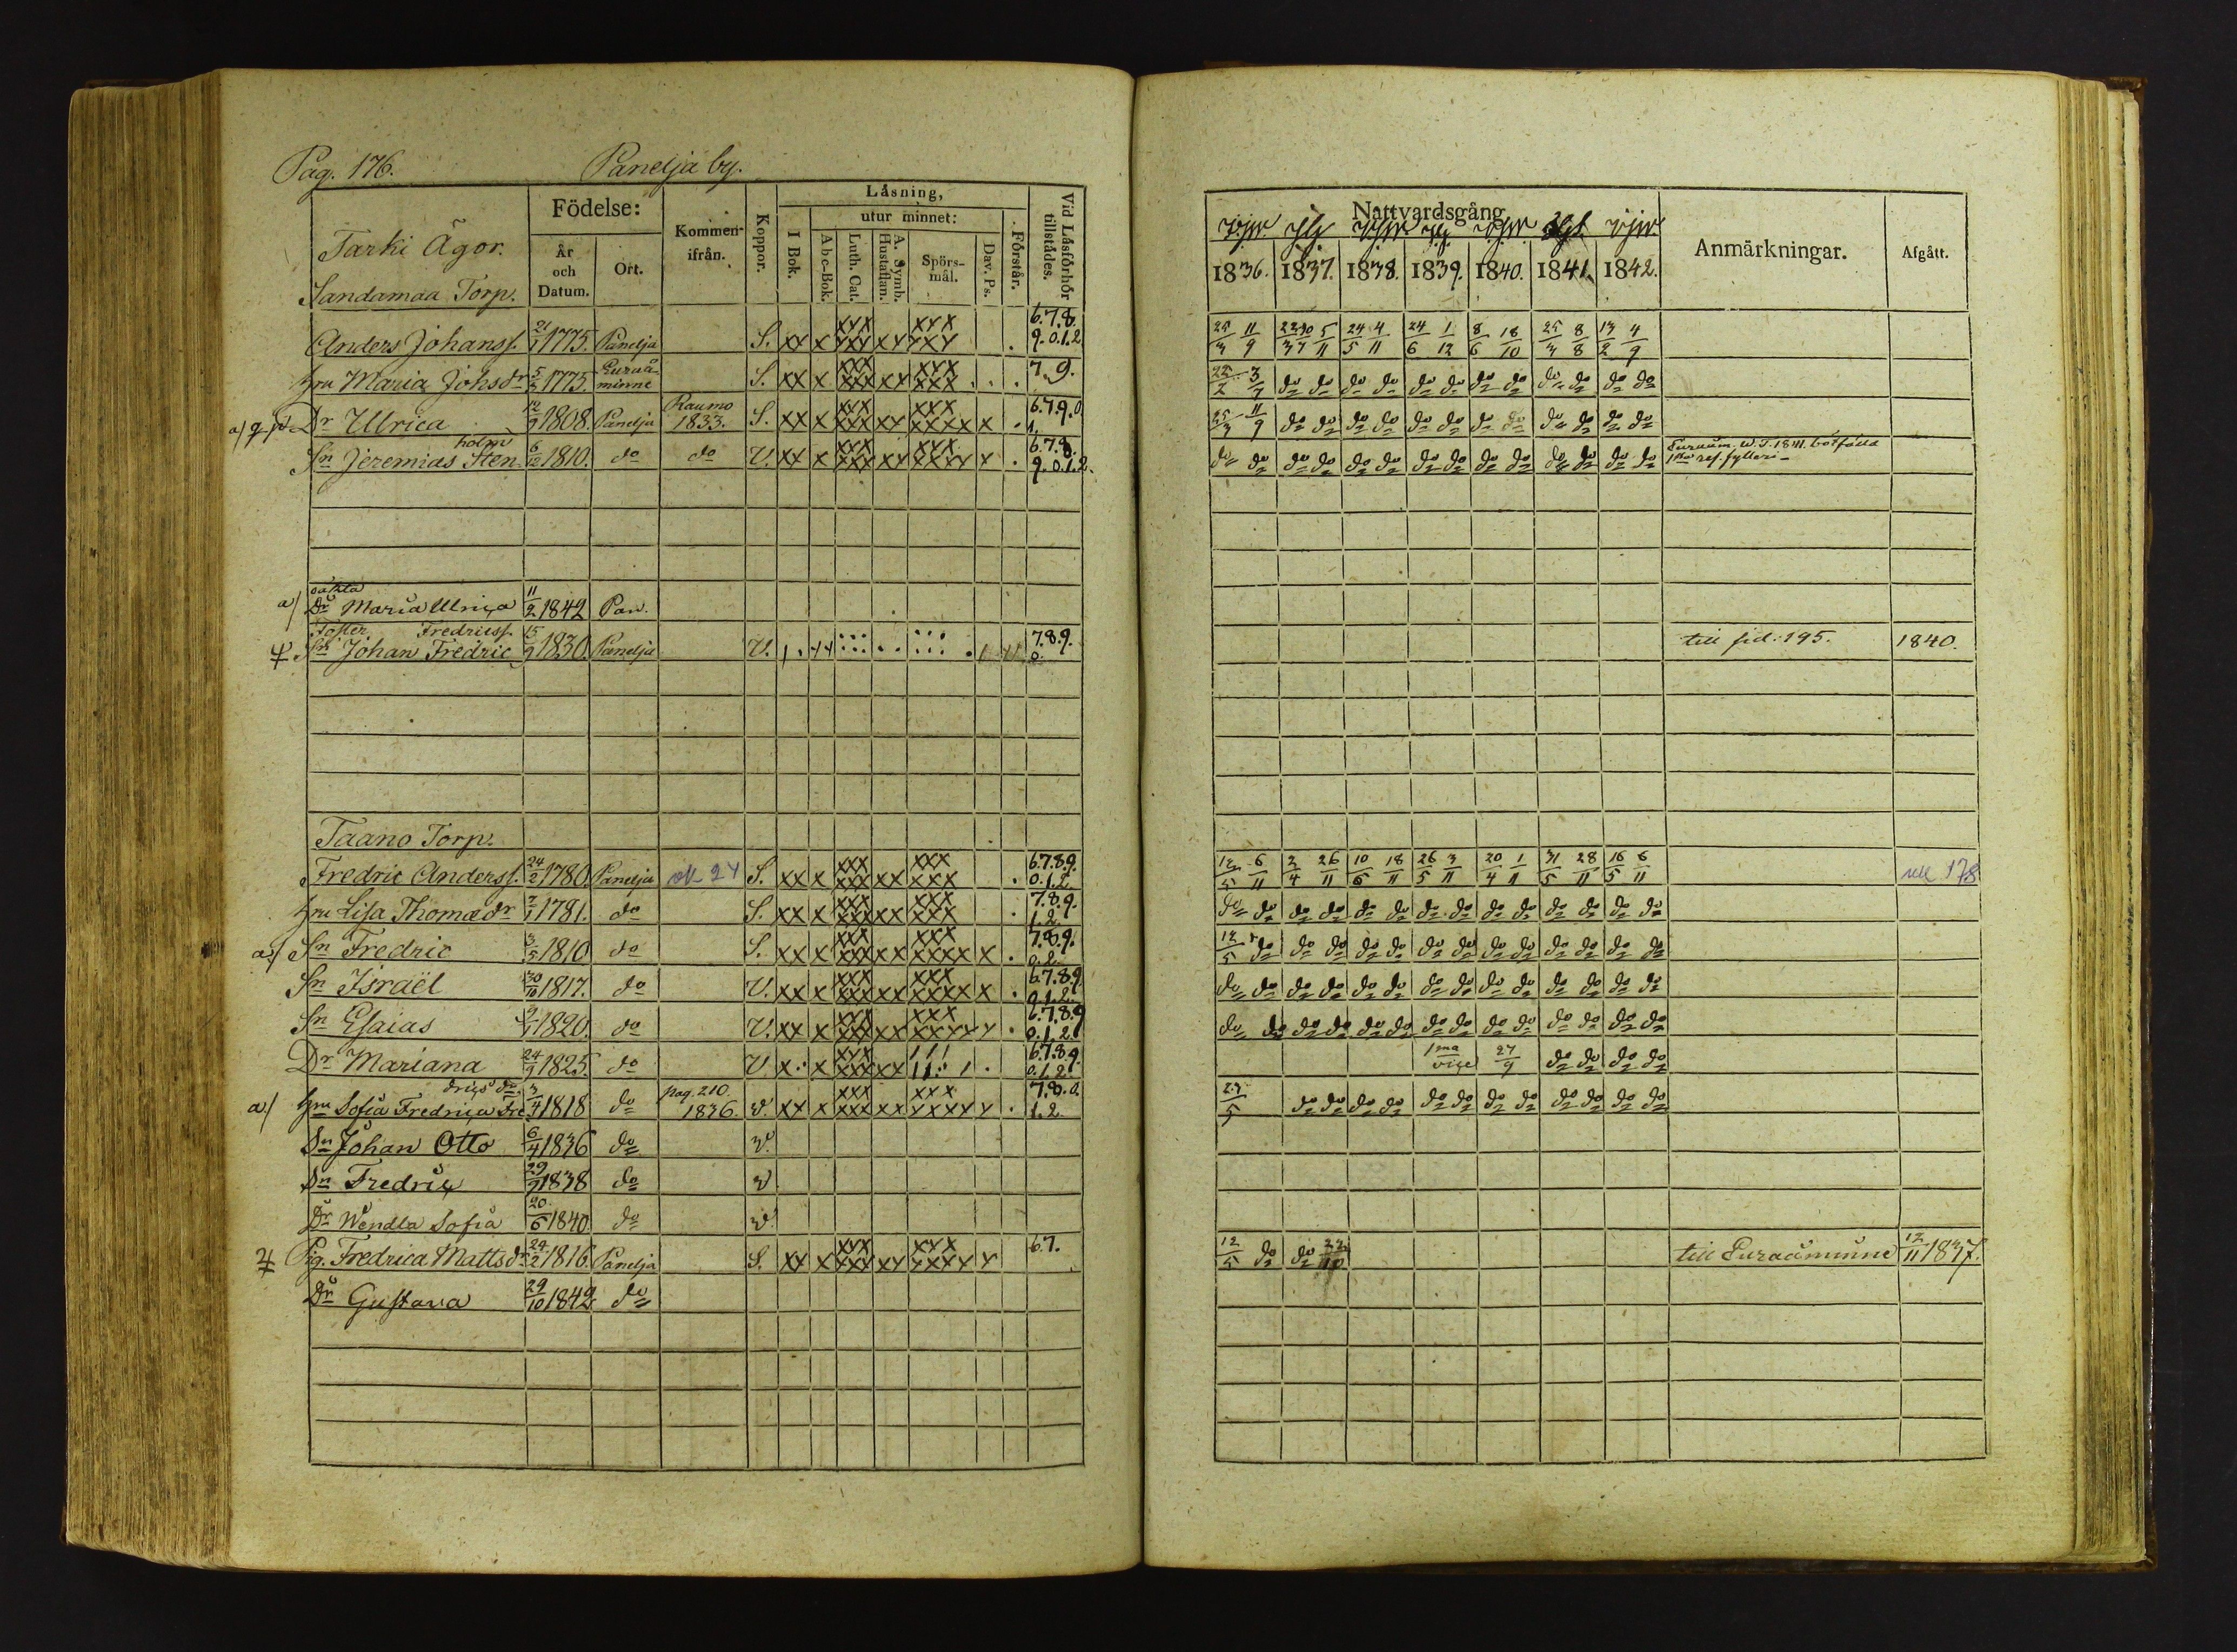 Pag. 176. Panelja by.
Tarki Ägor.
Sandamaa Torp.
Födelse:
År och Datum.
Ort.
Kommen ifrån.
Koppor.
Läsning,
I Bok.
utur minnet:
Abc-Bok.
Luth. Cat.
A. Symb. Hustaflan.
Spörsmål.
Dav. Ps.
Förstår.
Vid Läsförhör tillstådes.
Nattvardsgång
1836. 1837. 1838. 1839. 1840. 1841. 1842.
Anmärkningar.
Afgått.
Anders Johanss. 1775. Panelja S. xx x xxx xxx xx xxx xxx 6.7.8. 9.0.1.2 25/3 11/9 24/5 4/11 24/6 1/12 8/6 18/10 25/3 8/8 13/2 4/9
hru Maria Johsdr 5/3 1775. Euraåminne S. xx x xxx xxx xx xxx xxx 7.9. 22/2 do do do do do do do do do do do do
a) Dr Ulrica 1808. Panelja Raumo 1833. S. xx x xxx xxx xx xxx xxxx x 6.7.9.0 1. 25/3 11/9 do do do do do do do do do do do do
Sn Jeremias Stenholm 6/12 1810. do do V. xx x xxx xxx xx xxx xxxx x 6.7.8. 9.0.1.2. do do do do do do do do do do do do do do Euraåm. W.T. 1841. bötfälld 1sta res. fylleri
a) oäkta Dr Maria Ulrica 11/2 1842 Pan.
Foster Sn Johan Fredric Fredricss. 15/9 1830. Panelja V. 7.8.9. 0. till sid. 195. 1840.
Taano Torp.
Fredric Anderss. 24/2 1780. Panelja 24 S. xx x xxx xxx xx xxx xxx 6.7.8.9. 0.1.2. 12/5 6/11 2/4 26/11 10/6 18/11 26/5 3/11 20/4 1/11 31/5 28/11 16/5 6/11 178
hru Lisa Thomædr 7/1 1781. do S. xx x xxx xxx xx xxx xxx 7.8.9. 1.2. do do do do do do do do do do do do do do
a) Sn Fredric 3/5 1810 do S. xx x xxx xxx xx xxx xxxx x 7.8.9. 0.2. 12/5 do do do do do do do do do do do do do
Sn Israël 30/10 1817. do V. xx x xxx xxx xx xxx xxxx x 6.7.8.9. do do do do do do do do do do do do do do
Sn Esaias 1820. do V. xx x xxx xxx xx xxx xxxx x 6.7.8.9 0.1.2. do do do do do do do do do do do do do do
Dr Mariana 24/9 1825. do V 6.7.8.9. 0.1.2. 1ma vice 27/9 do do do do
a) hru Sofia Fredrica Fredricsdr 3/4 1818 do pag. 210. 1836. v. xx x xxx xxx xx xxx xxxx x 7.8.0. 1.2. 23/5 do do do do do do do do do do do do
Sn Johan Otto 1836 do v.
Sn Fredric 29/9 1838 do v
Dr Wendla Sofia 20/6 1840 do v.
Pig. Fredrica Mattsdr 24/2 1816. Panelja S. xx x xxx xxx xx xxx xxxx x 6.7. 12/5 do do 22/10 till Euraåminne 12/11 1837.
Dr Gustava 29/10 1842 do